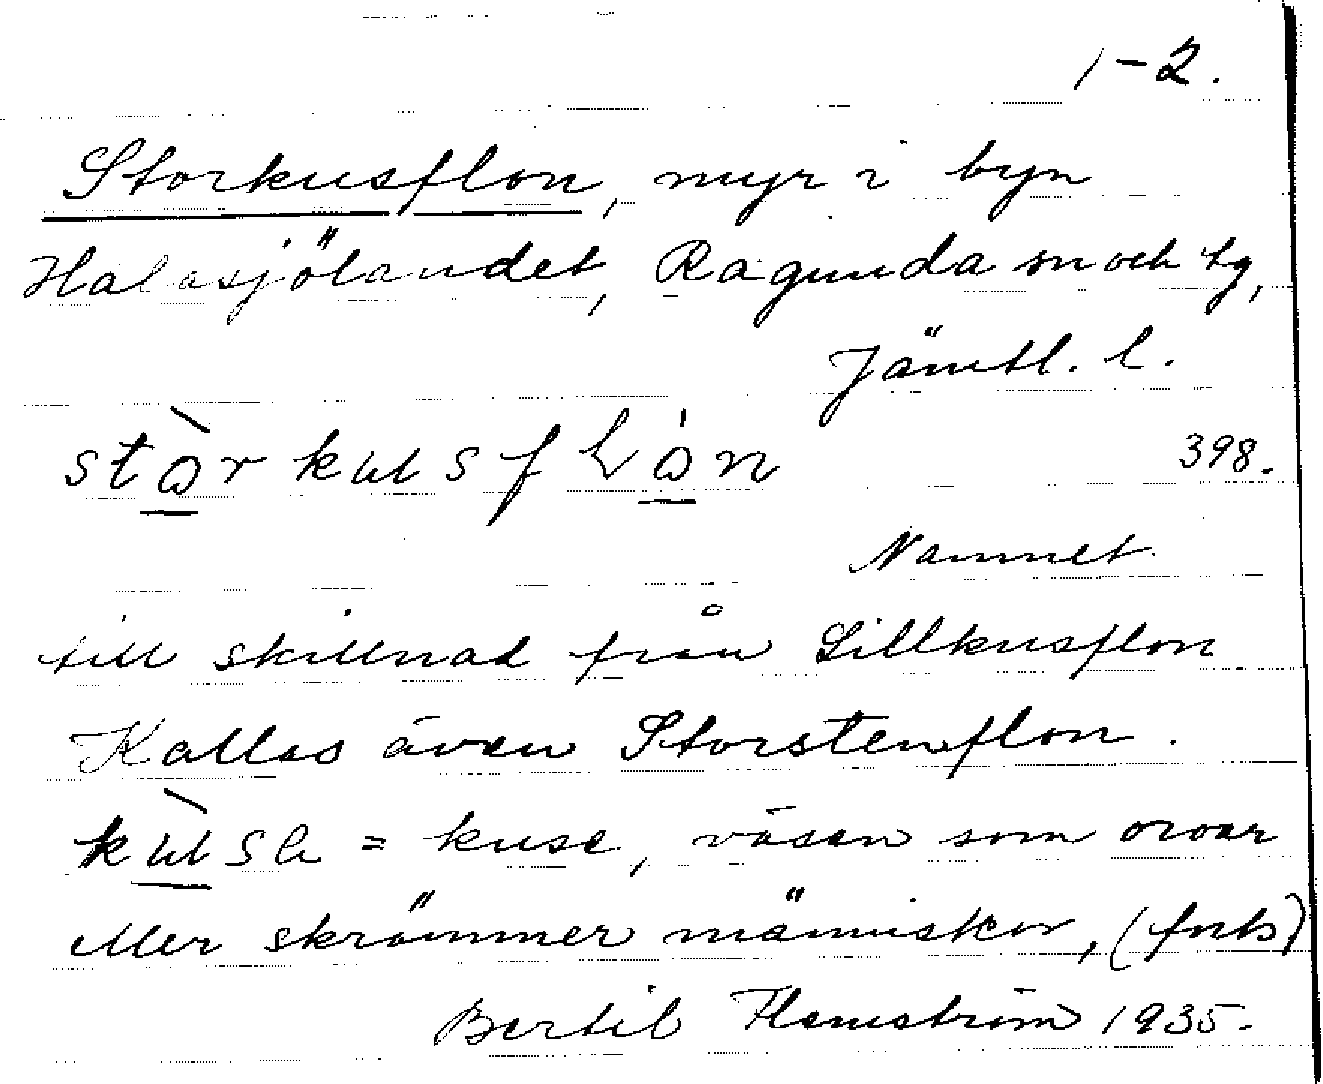 1-2.
Storkusflon, myr i byn
Halasjölandet, Ragunda sn och tg,
Jämtl. l.
stòrkusflón
398.
Namnet
till skillnad från Lillkusflon
Kallas även Storstenflon.
kùsa = kuse, väsen som oroar
eller skrämmer människor, (forts)
Bertil Flemström 1935.